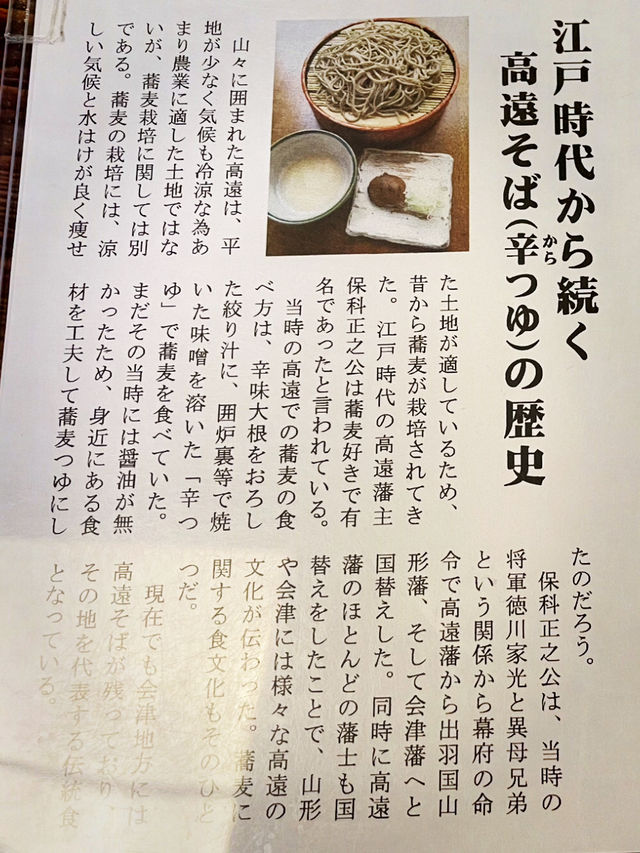 江戸時代から続く
高遠そば(辛つゆ)の歴史
から
　山々に囲まれた高遠は、平
地が少なく気候も冷涼な為あ
まり農業に適した土地ではな
いが、蕎麦栽培に関しては別
である。蕎麦の栽培には、涼
しい気候と水はけが良く痩せ
た土地が適しているため、
昔から蕎麦が栽培されてき
た。江戸時代の高遠藩主
保科正之公は蕎麦好きで有
名であったと言われている。
　当時の高遠での蕎麦の食
べ方は、辛味大根をおろし
た絞り汁に、囲炉裏等で焼
いた味噌を溶いた「辛つ
ゆ」で蕎麦を食べていた。
まだその当時には醤油が無
かったため、身近にある食
材を工夫して蕎麦つゆにし
たのだろう。
　保科正之公は、当時の
将軍徳川家光と異母兄弟
という関係から幕府の命
令で高遠藩から出羽国山
形藩、そして会津藩へと
国替えした。同時に高遠
藩のほとんどの藩士も国
替えをしたことで、山形
や会津には様々な高遠の
文化が伝わった。蕎麦に
関する食文化もそのひと
つだ。
　現在でも会津地方には
高遠そばが残っており、
その地を代表する伝統食
となっている。